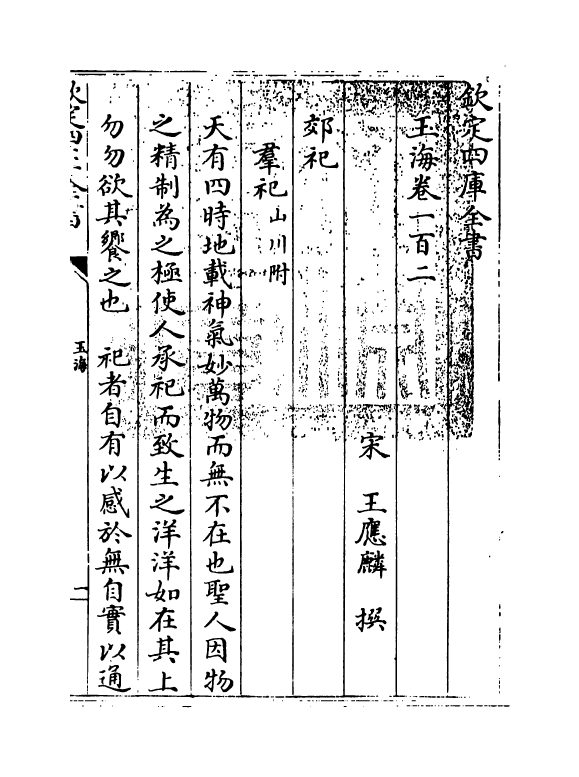 欽定四庫全書
玉海卷一百二
宋 王應麟 撰
郊祀
羣祀山川附
天有四時地載神氣妙萬物而無不在也聖人因物
之精制為之極使人承祀而致生之洋洋如在其上
勿勿欲其饗之也 祀者自有以感於無自實以通
欽定四庫全書
玉海